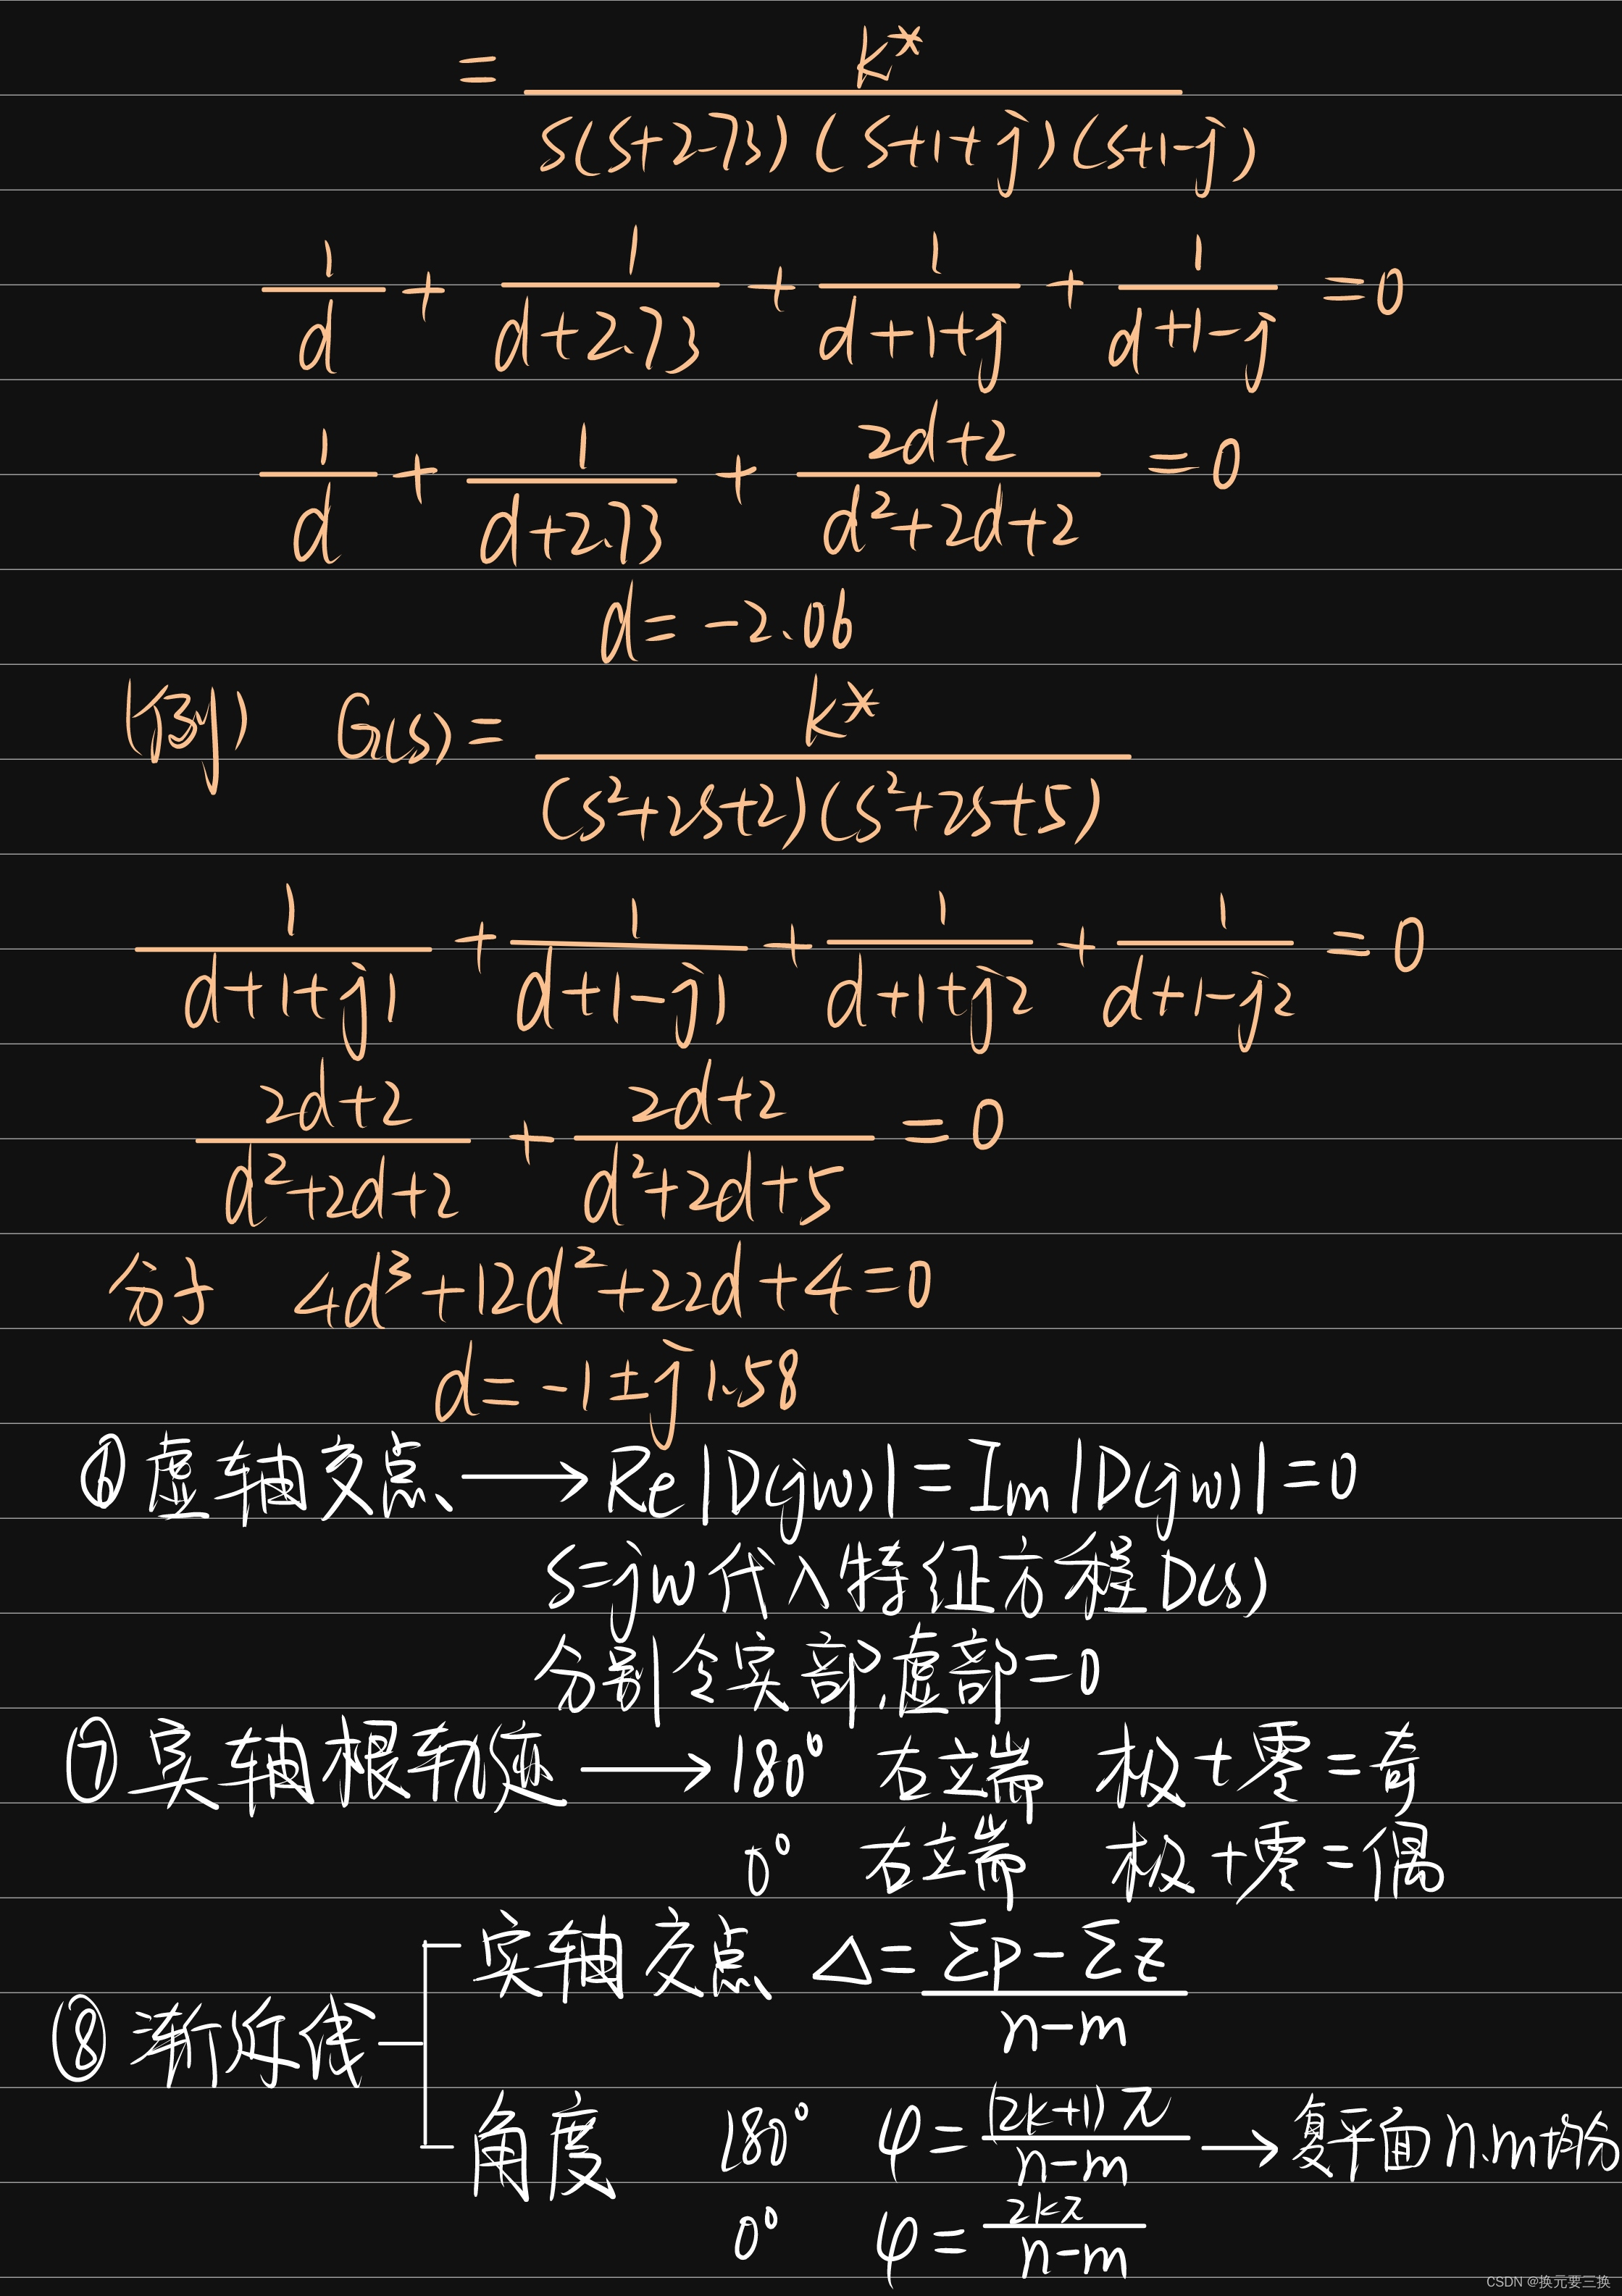 = K* / s(s+2.73)(s+1+j)(s+1-j)
1/d + 1/(d+2.73) + 1/(d+1+j) + 1/(d+1-j) = 0
1/d + 1/(d+2.73) + (2d+2)/(d²+2d+2) = 0
d = -2.06
(例) G(s) = K* / (s²+2s+2)(s²+2s+5)
1/(d+1+j1) + 1/(d+1-j1) + 1/(d+1+j2) + 1/(d+1-j2) = 0
(2d+2)/(d²+2d+2) + (2d+2)/(d²+2d+5) = 0
分子 4d³+12d²+22d+4=0
d = -1±j1.58
⑥虚轴交点 → Re|D(jw)| = Im|D(jw)| = 0
s=jw代入特征方程D(s)
分别令实部、虚部=0
⑦实轴根轨迹 → 180° 右立端 极+零=奇
0° 右立端 极+零=偶
⑧渐近线
实轴交点 Δ = (Σp-Σz)/(n-m)
角度 180° φ = (2k+1)π/(n-m) → 复平面n.m均分
0° φ = 2kπ/(n-m)
CSDN @换元要三换